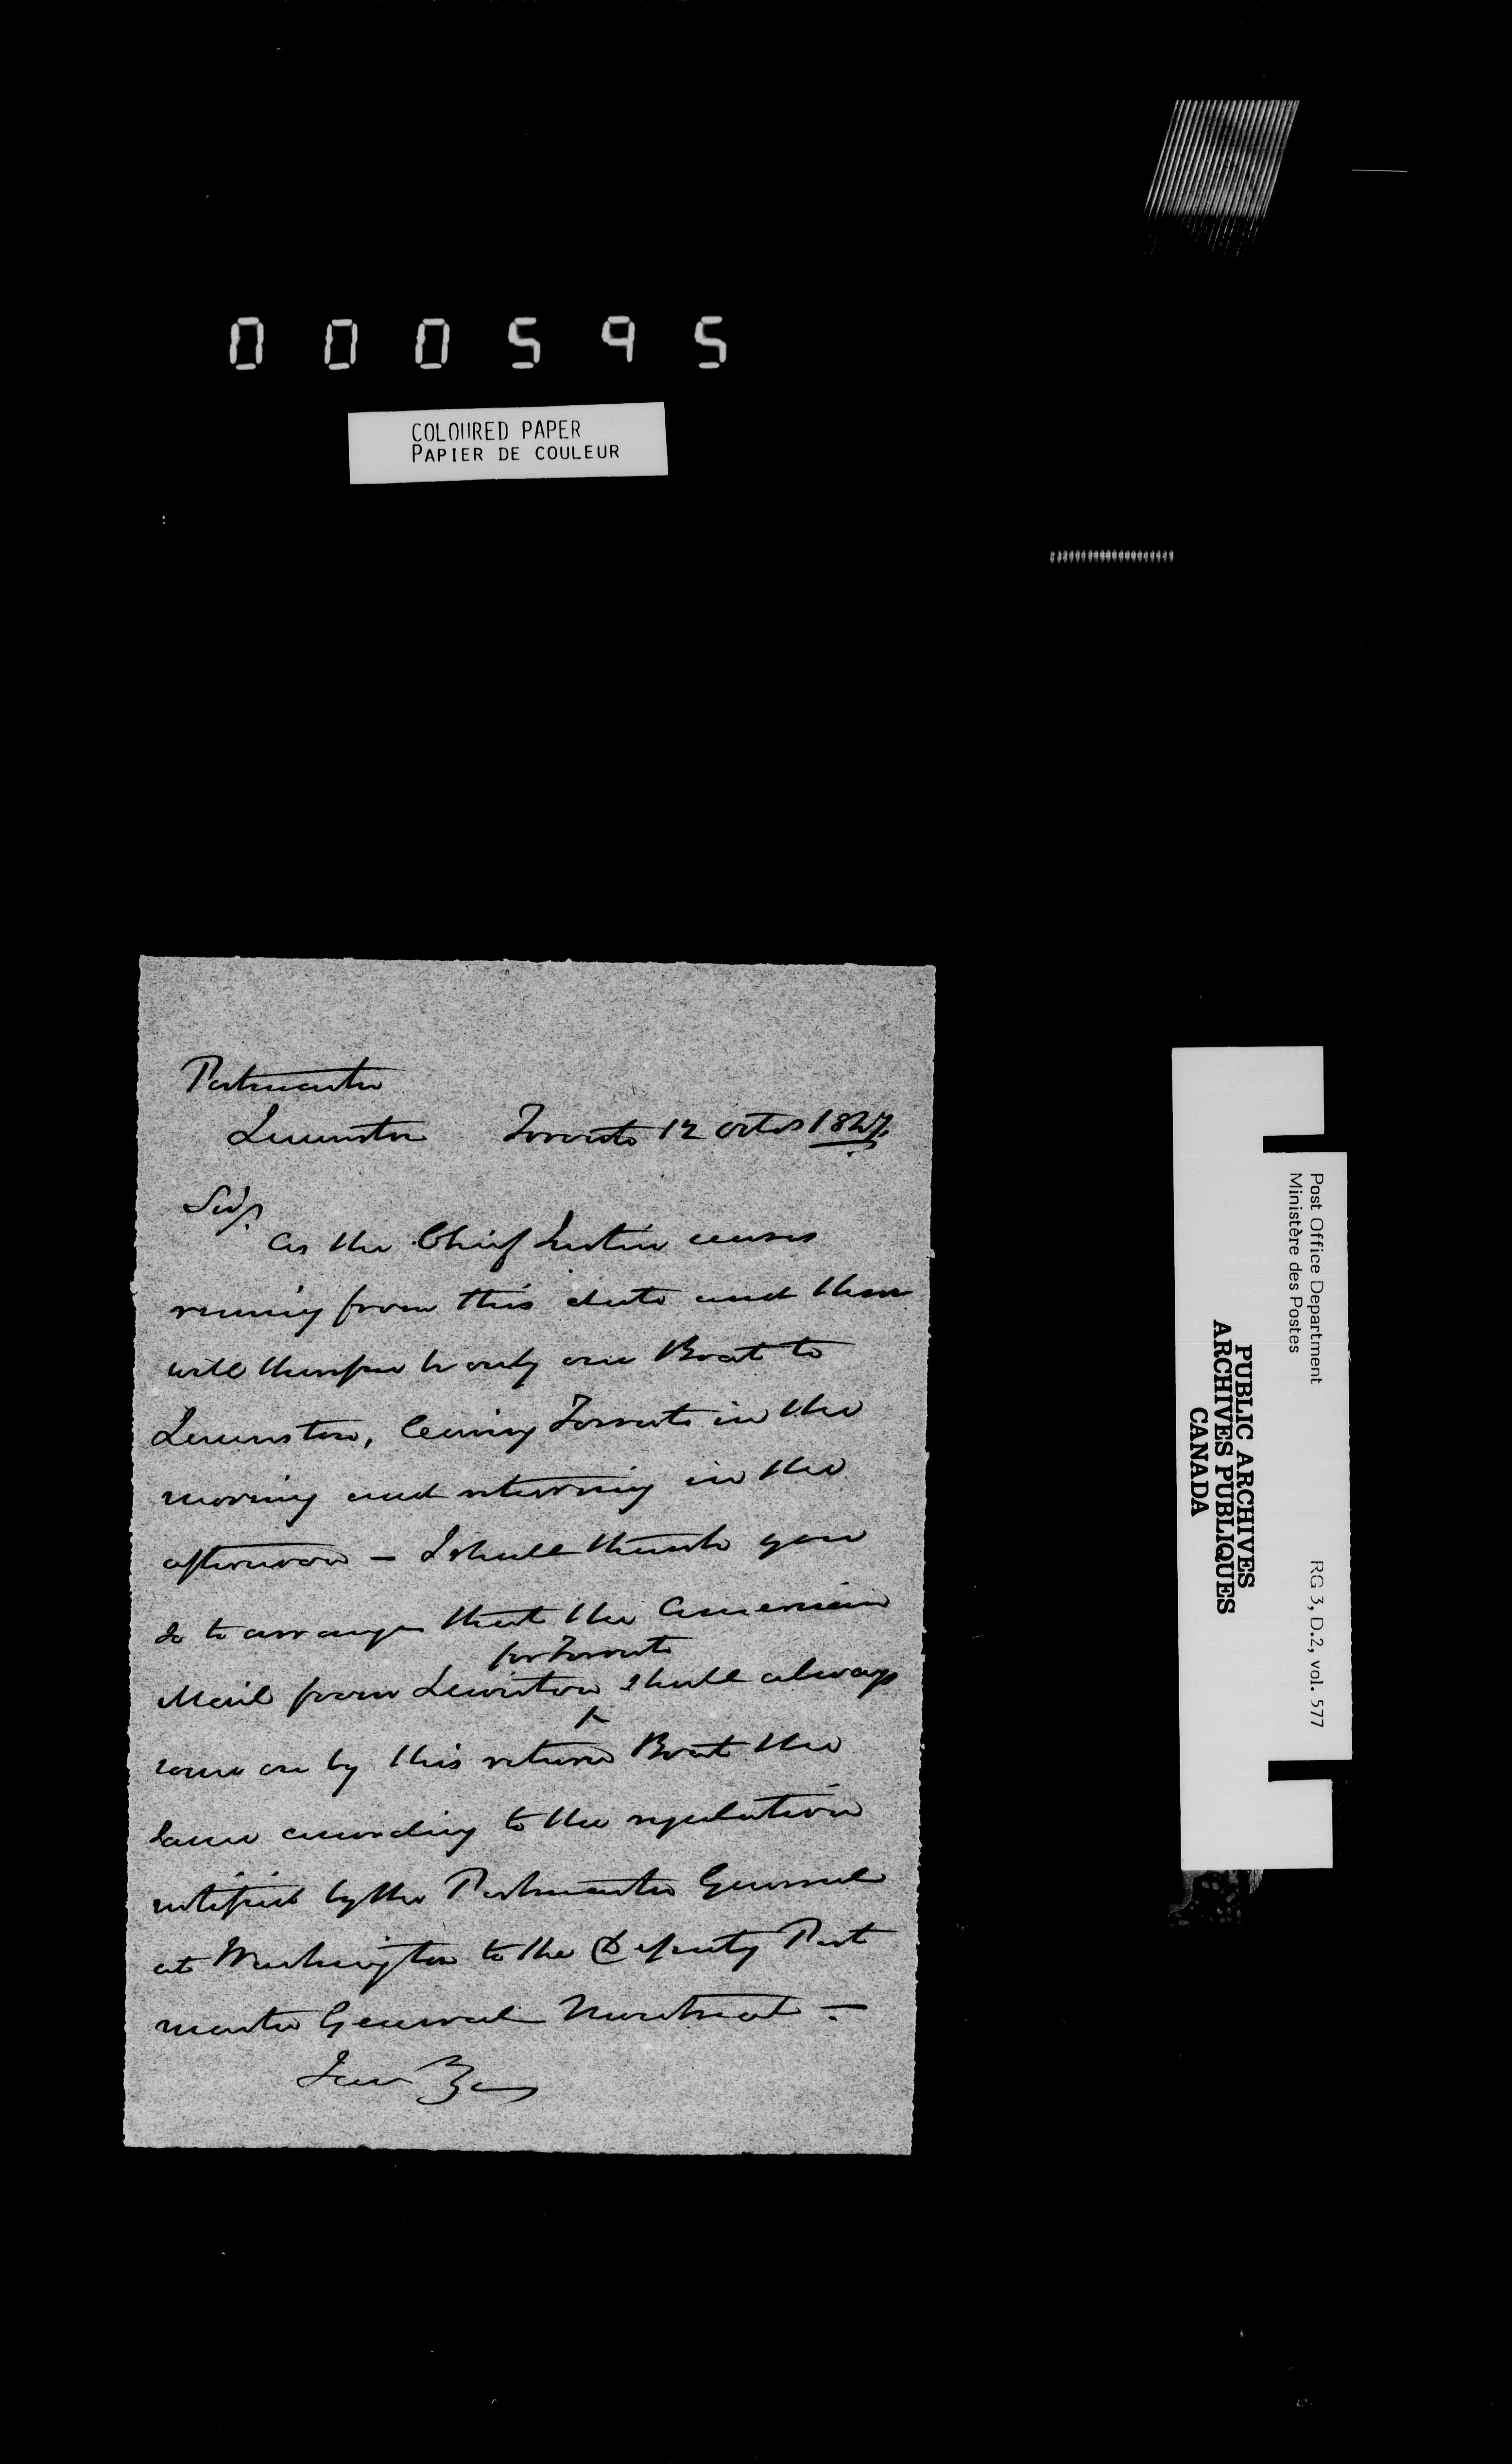 000595
COLOURED PAPER
PAPIER DE COULEUR
Postmaster
Lewiston Toronto 12 Octr 1847.
Sir,
As the Chief Justice ceases
running from this date and there
will therefore be only one Boat to
Lewiston, leaving Toronto in the
morning and returning in the
afternoon – I shall thank you
so to arrange that the American
for Toronto
Mail from Lewiston shall always
come on by this return Boat the
same according to the regulation
notified by the Postmaster General
at Washington to the Deputy Post
master General Montreal –
I am
Post Office Department
Ministère des Postes
RG 3, D.2, vol. 577
PUBLIC ARCHIVES
ARCHIVES PUBLIQUES
CANADA